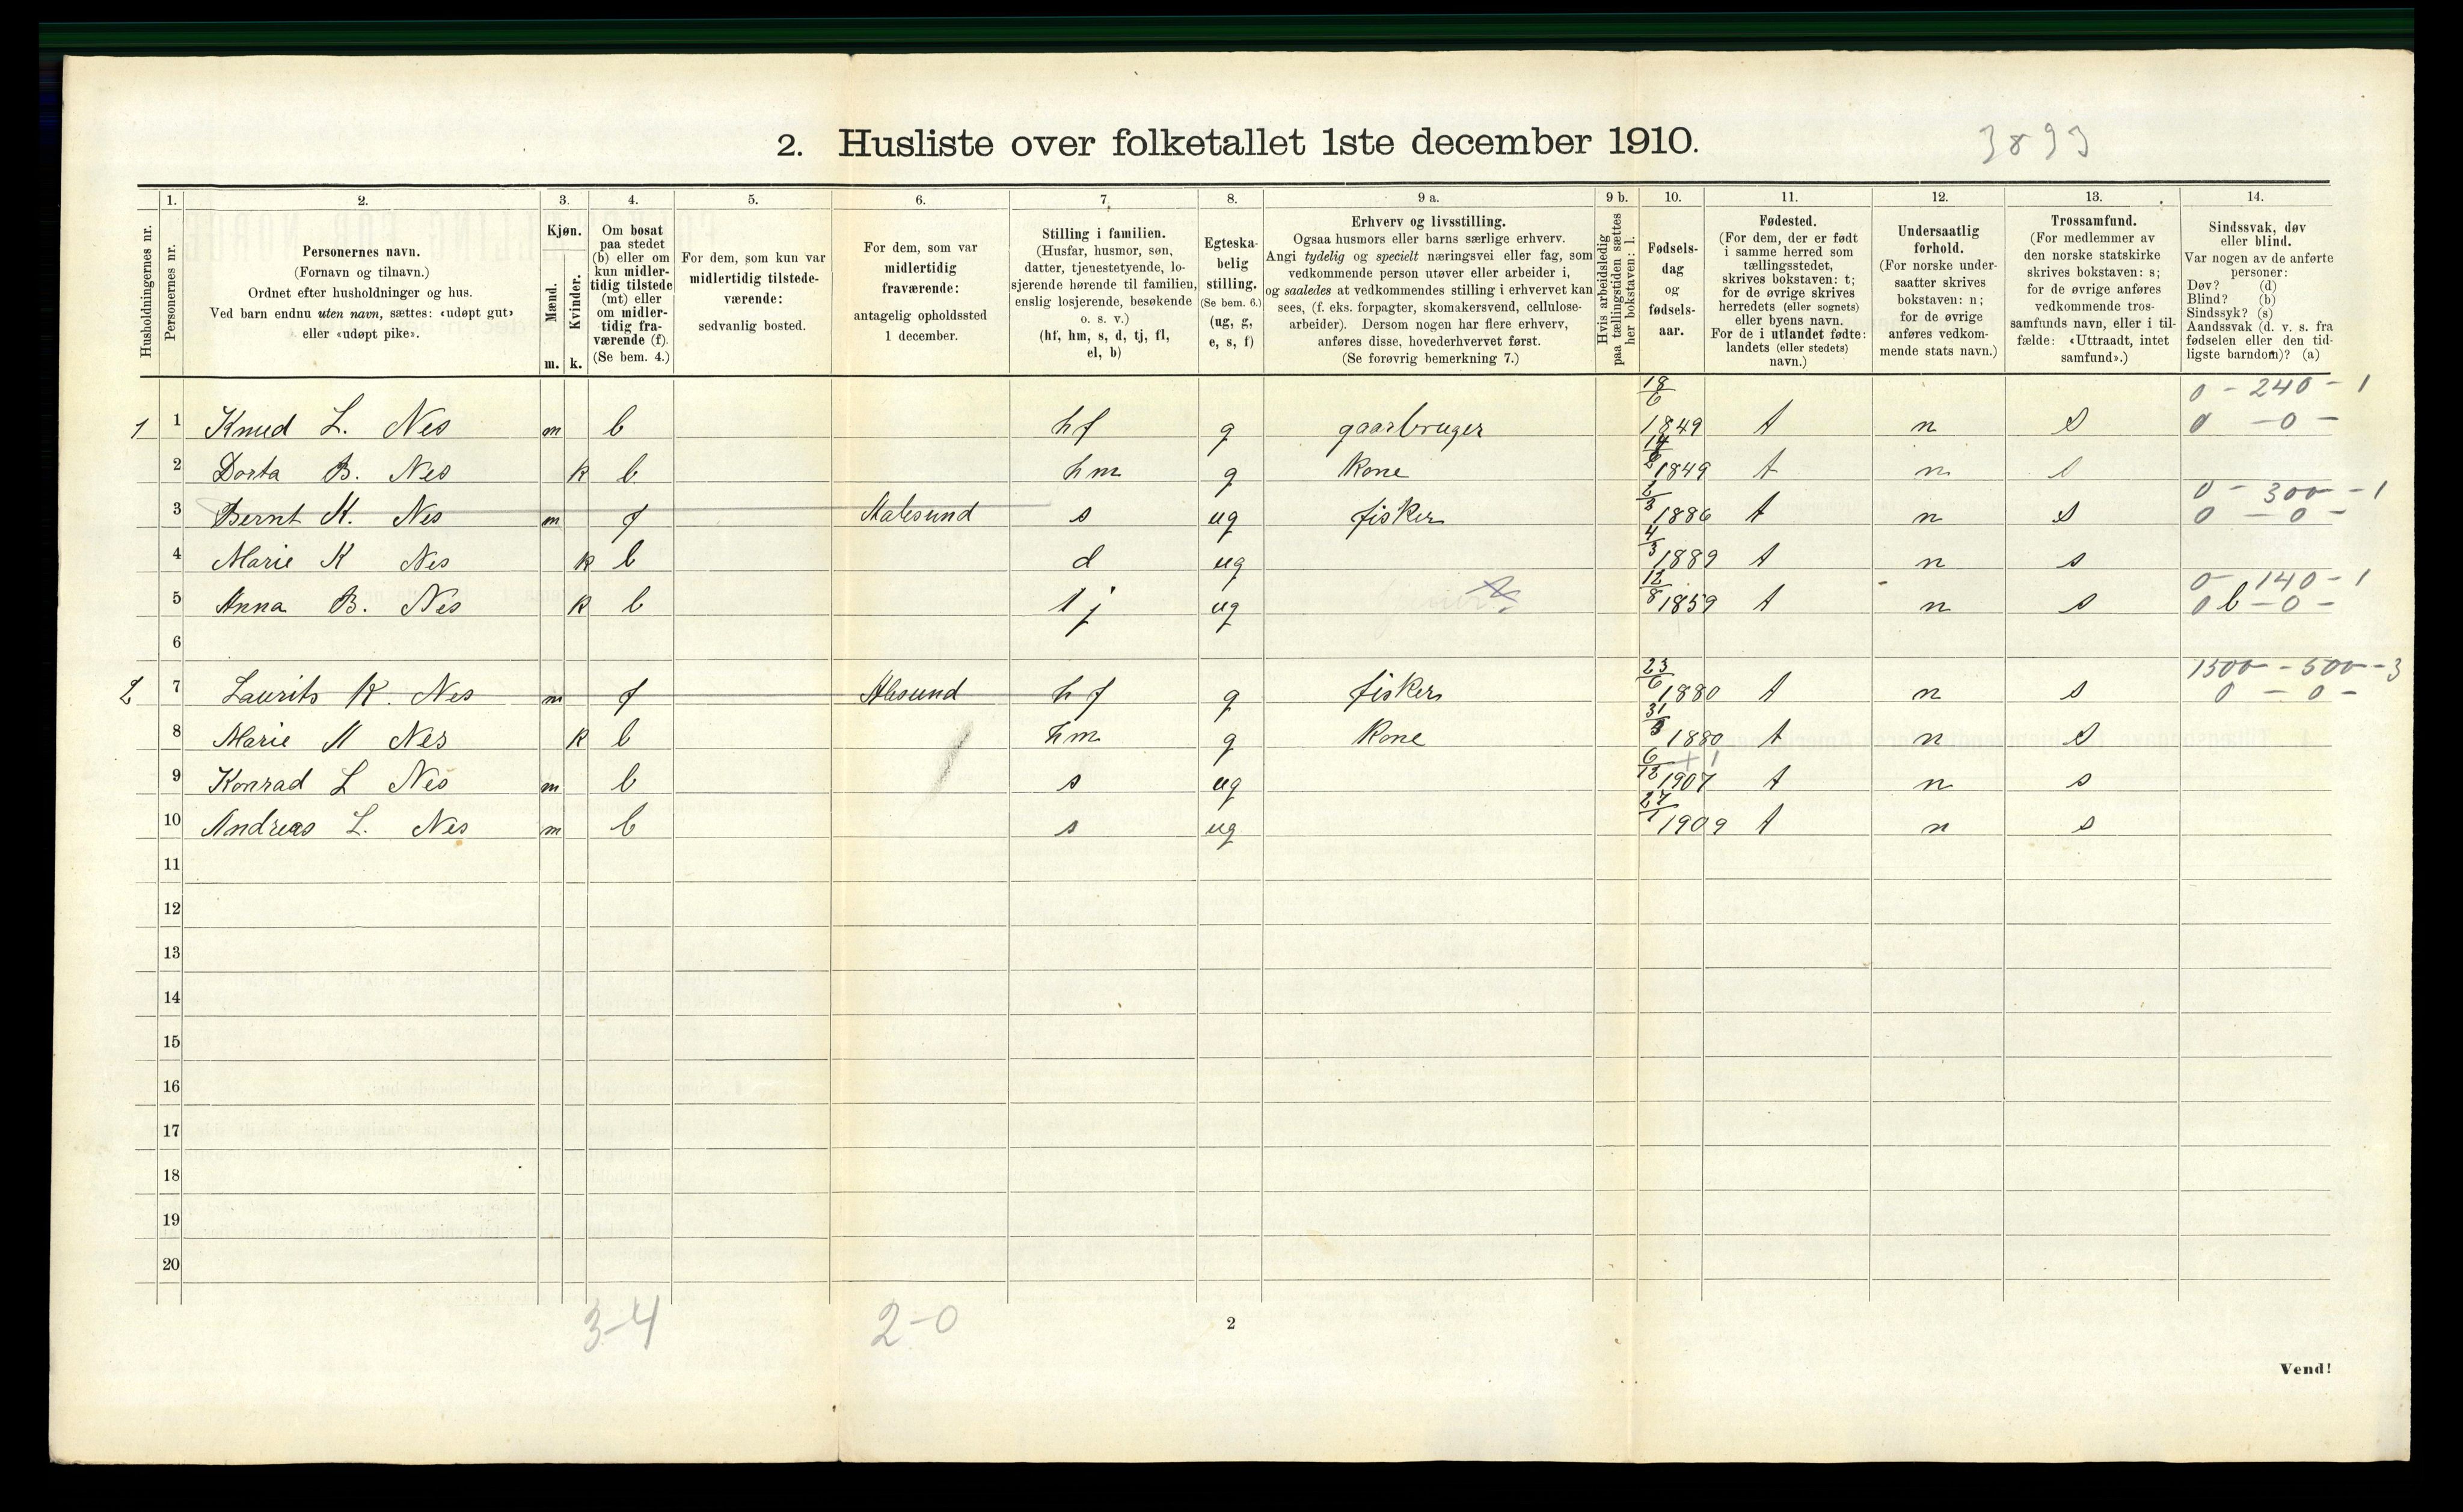 2. Husliste over folketallet 1ste december 1910.
3893
Husholdningernes nr.
1.
Personernes nr.
2.
Personernes navn.
(Fornavn og tilnavn.)
Ordnet efter husholdninger og hus.
Ved barn endnu uten navn, sættes: «udøpt gut»
eller «udøpt pike».
3.
Kjøn.
Mænd.
m.
Kvinder.
k.
4.
Om bosat
paa stedet
(b) eller om
kun midler-
tidig tilstede
(mt) eller
om midler-
tidig fra-
værende (f).
(Se bem. 4.)
5.
For dem, som kun var
midlertidig tilstede-
værende:
sedvanlig bosted.
6.
For dem, som var
midlertidig
fraværende:
antagelig opholdssted
1 december.
7.
Stilling i familien.
(Husfar, husmor, søn,
datter, tjenestetyende, lo-
sjerende hørende til familien,
enslig losjerende, besøkende
o. s. v.)
(hf, hm, s, d, tj, fl,
el, b)
8.
Egteska-
belig
stilling.
(Se bem. 6.)
(ug, g,
e, s, f)
9 a.
Erhverv og livsstilling.
Ogsaa husmors eller barns særlige erhverv.
Angi tydelig og specielt næringsvei eller fag, som
vedkommende person utøver eller arbeider i,
og saaledes at vedkommendes stilling i erhvervet kan
sees, (f. eks. forpagter, skomakersvend, cellulose-
arbeider). Dersom nogen har flere erhverv,
anføres disse, hovederhvervet først.
(Se forøvrig bemerkning 7.)
9 b.
Hvis arbeidsledig
paa tællingstiden sættes
her bokstaven: l.
10.
Fødsels-
dag
og
fødsels-
aar.
11.
Fødested.
(For dem, der er født
i samme herred som
tællingsstedet,
skrives bokstaven: t;
for de øvrige skrives
herredets (eller sognets)
eller byens navn.
For de i utlandet fødte:
landets (eller stedets)
navn.)
12.
Undersaatlig
forhold.
(For norske under-
saatter skrives
bokstaven: n;
for de øvrige
anføres vedkom-
mende stats navn.)
13.
Trossamfund.
(For medlemmer av
den norske statskirke
skrives bokstaven: s;
for de øvrige anføres
vedkommende tros-
samfunds navn, eller i til-
fælde: «Uttraadt, intet
samfund».)
14.
Sindssvak, døv
eller blind.
Var nogen av de anførte
personer:
Døv? (d)
Blind? (b)
Sindssyk? (s)
Aandssvak (d. v. s. fra
fødselen eller den tid-
ligste barndom)? (a)
0 - 240 - 1
1 1 Knud L. Nes m b hf g gaarbruger 18/6 1849 t n s 0 - 0 -
2 Dorta B. Nes k b hm g Kone 1849 t n s
0 - 300 - 1
3 Bernt K. Nes m f Aalesund s ug fisker 1886 t n s 0 - 0 -
4 Marie K Nes k b d ug 4/3 1889 t n s
0 - 140 - 1
5 Anna B. Nes k b tj ug 12/8 1859 t n s 0 b - 0 -
6
1500 - 500 - 3
2 7 Laurits K. Nes m f Alesund hf g fisker 23/6 1880 t n s 0 - 0 -
8 Marie M Nes k b hm g Kone 1880 t n s
9 Konrad L Nes m b s ug 6/12 + 1 1907 t n s
10 Andreas L. Nes m b s ug 1909 t n s
11
12
13
14
15
16
17
18
19
20
3-4
2-0
2
Vend!